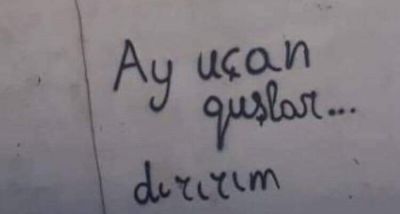 Ay uçan
quşlar...
dırırım